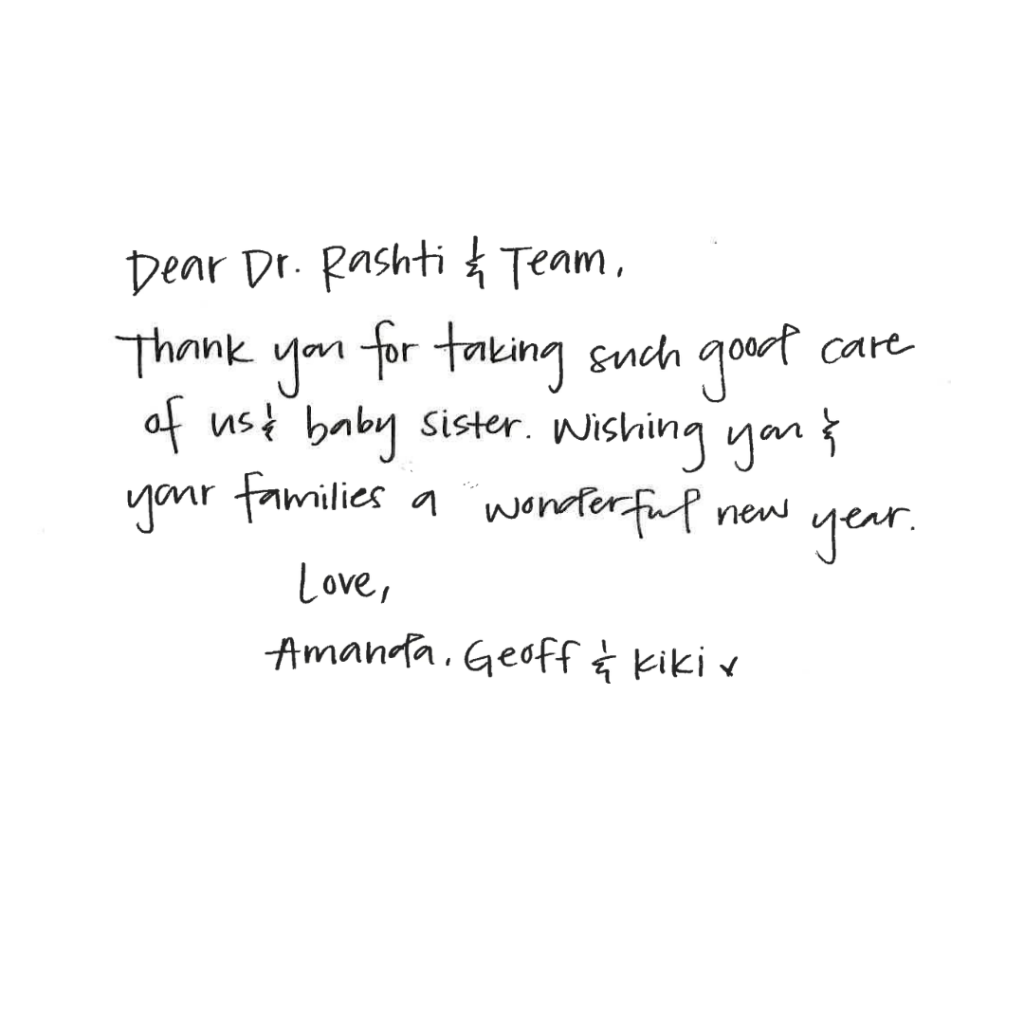 Dear Dr. Rashti & Team,
Thank you for taking such good care
of us & baby sister. Wishing you &
your families a wonderful new year.
Love,
Amanda, Geoff & Kiki x